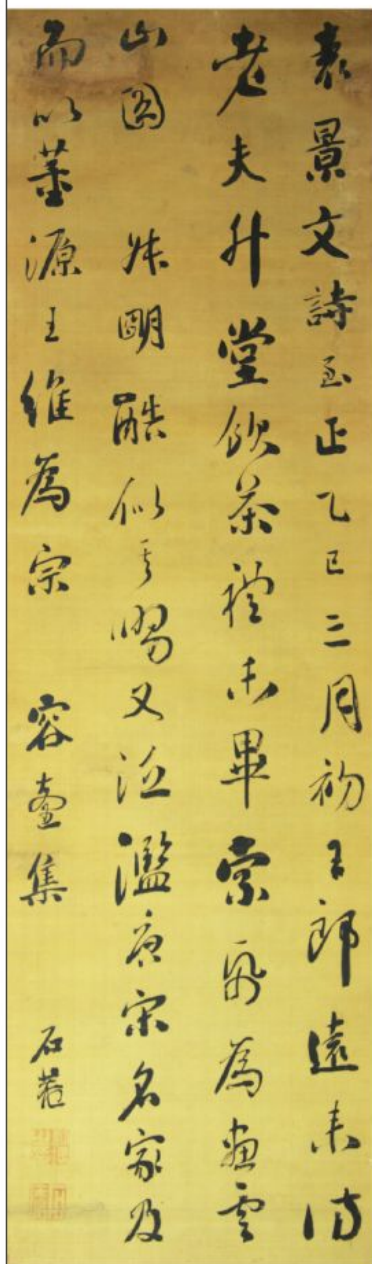 袁景文詩至正乙巳三月初王郎遠来訪
老夫升堂飲茶禮未畢索紙為畫雲
山圖 叔明酷似其 又泛濫唐宋名家及
而以董源王維為宗 容臺集
石菴